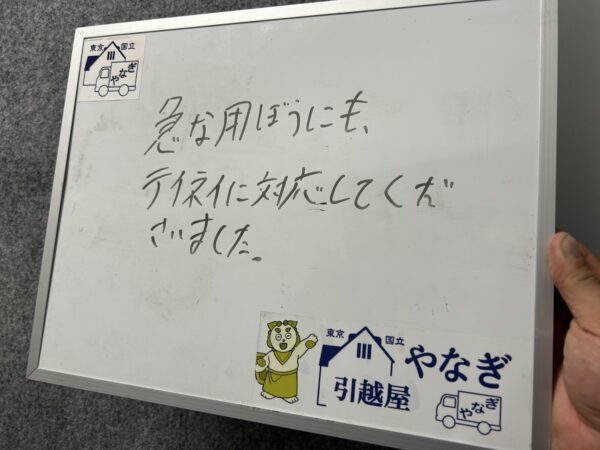 東京 国立
やなぎ
急な用ぼうにも、
テイネイに対応してくだ
さいました。
東京 国立
やなぎ
引越屋
やなぎ